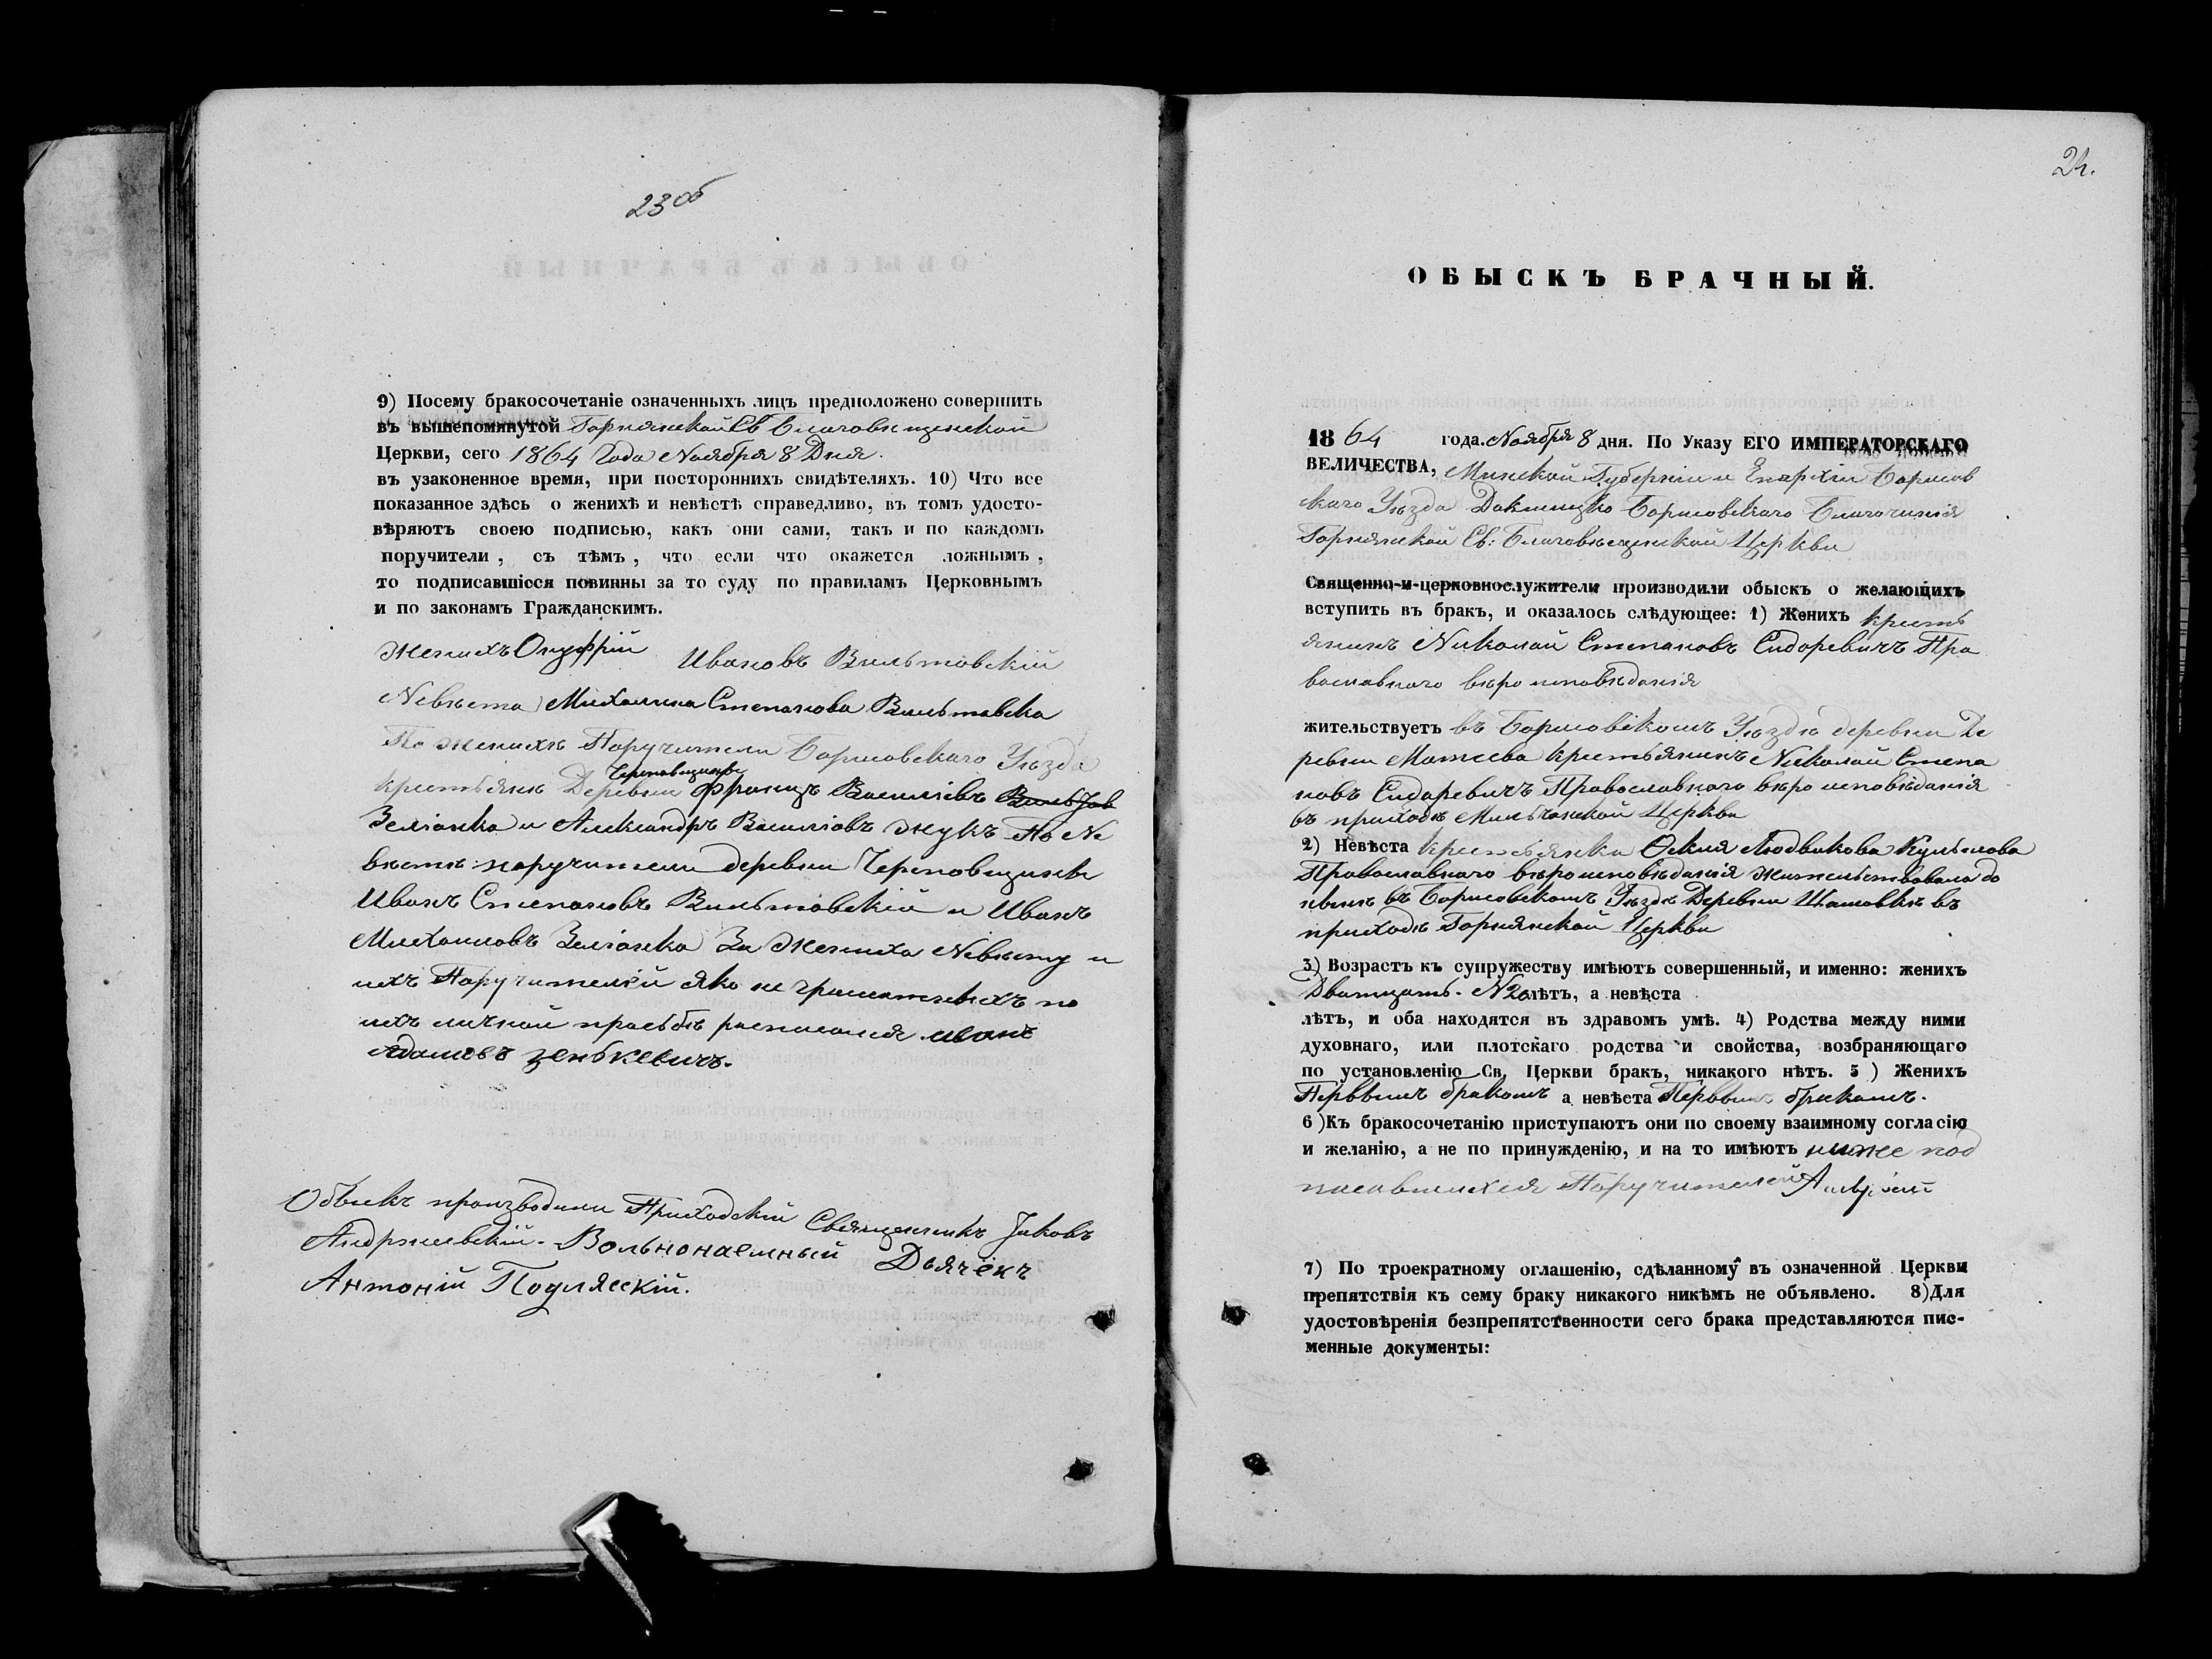 23 об
9) Посему бракосочетаніе означенныхъ лицъ предположено совершить
въ вышепомянутой Горнянской Св Благовещенской
Церкви, сего 1864 Года Ноября 8 Дня.
въ узаконенное время, при постороннихъ свидѣтеляхъ. 10) Что все
показанное здѣсь о женихѣ и невѣстѣ справедливо, въ томъ удосто-
вѣряютъ своею подписью, какъ они сами, такъ и по каждомъ
поручители, съ тѣмъ, что если что окажется ложнымъ,
то подписавшіеся повинны за то суду по правиламъ Церковнымъ
и по законамъ Гражданскимъ.
Женихъ Онуфрій Ивановъ Вильтовскій
Невѣста Михалина Степанова Вильтовска
По женихѣ Поручители Борисовскаго Уѣзда
Крестьяне Деревни Францъ Василіевъ
Зеліонка и Александръ Василіовъ Жукъ По Не
вѣстѣ поручители деревни
Иванъ Степановъ Вильтовскій и Иванъ
Михаиловъ Зеліонка За Жениха Невѣсту и
ихъ Поручителей яко не грамотныхъ по
ихъ личной просьбѣ расписался иванъ
адамовъ зенькевичъ.
Обыскъ производили Приходскій Священникъ Іаковъ
Андржиевскій. Вольнонаемный Дьячекъ
Антоній Подляскій.
24.
ОБЫСКЪ БРАЧНЫЙ.
18 64 года. Ноября 8 дня. По Указу ЕГО ИМПЕРАТОРСКАГО
ВЕЛИЧЕСТВА, Минской Губерніи и Епархіи Борисов
скаго Уѣзда Докшицко Борисовскаго Благочинія
Горнянской Св: Благовѣщенской Церкви
Священно-и-церковнослужители производили обыскъ о желающихъ
вступить въ бракъ, и оказалось слѣдующее: 1) Женихъ Кресть
янинъ Николай Степановъ Сидоревичъ Пра
вославнаго вѣроисповѣданія
жительствуетъ въ Борисовскомъ Уѣздѣ деревни Де
ревни Матеева крестьянинъ Николай Степа
новъ Сидоревичъ Православнаго вѣроисповѣданія
въ приходѣ Мильчанской Церкви
2) Невѣста Крестьянка Людвикова
Православнаго вѣроисповѣданія жительствовала до
нынѣ въ Борисовскомъ Уѣздѣ Деревни Шамовкѣ въ
приходѣ Горнянской Церкви
3) Возрастъ къ супружеству имѣютъ совершенный, и именно: женихъ
Дватцать. N20 лѣтъ, а невѣста
лѣтъ, и оба находятся въ здравомъ умѣ. 4) Родства между ними
духовнаго, или плотскаго родства и свойства, возбраняющаго
по установленію Св. Церкви бракъ, никакого нѣтъ. 5) Женихъ
Первымъ бракомъ а невѣста Первымъ бракомъ.
6) Къ бракосочетанію приступаютъ они по своему взаимному согласію
и желанію, а не по принужденію, и на то имѣютъ ниже под
писавшихся Поручителей
7) По троекратному оглашенію, сдѣланному въ означенной Церкви
препятствія къ сему браку никакого никѣмъ не объявлено. 8) Для
удостовѣренія безпрепятственности сего брака представляются пис-
менные документы: